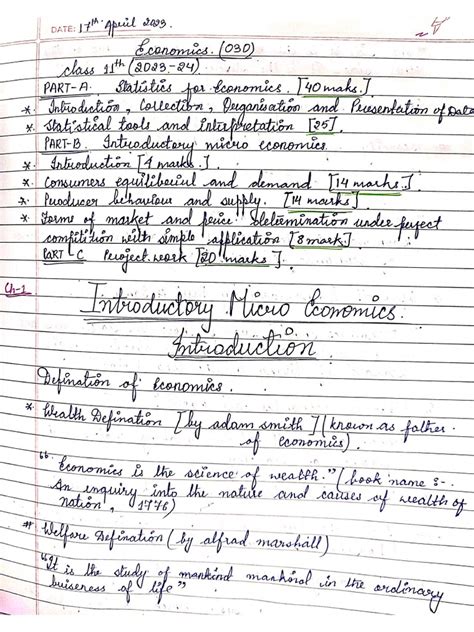 DATE: 17th April 2023.
Economics. (030)
class 11th (2023-24)
PART-A. Statistics for economics. [40 maks.]
* Introduction, Collection, Organisation and Presentation of Data
* Statistical tools and interpretation [25].
PART-B. Introductory micro economics.
* Introduction [4 marks.]
* Consumers equiliberiul and demand [14 marks.]
* Producer behaviour and supply. [14 marks]
* Forms of market and price determination under perfect
competition with simple application [8 mark.]
PART C Project work [20 marks]
Ch-1
Introductory Micro Economics.
Introduction
Defination of economics.
* Wealth Defination [by adam smith] (known as father
of economics).
"Economics is the science of wealth." (book name :-
An enquiry into the nature and causes of wealth of
nation, 1776)
# Welfare Defination (by alfrad marshall)
"It is the study of mankind mankind in the ordinary
buiseness of life"